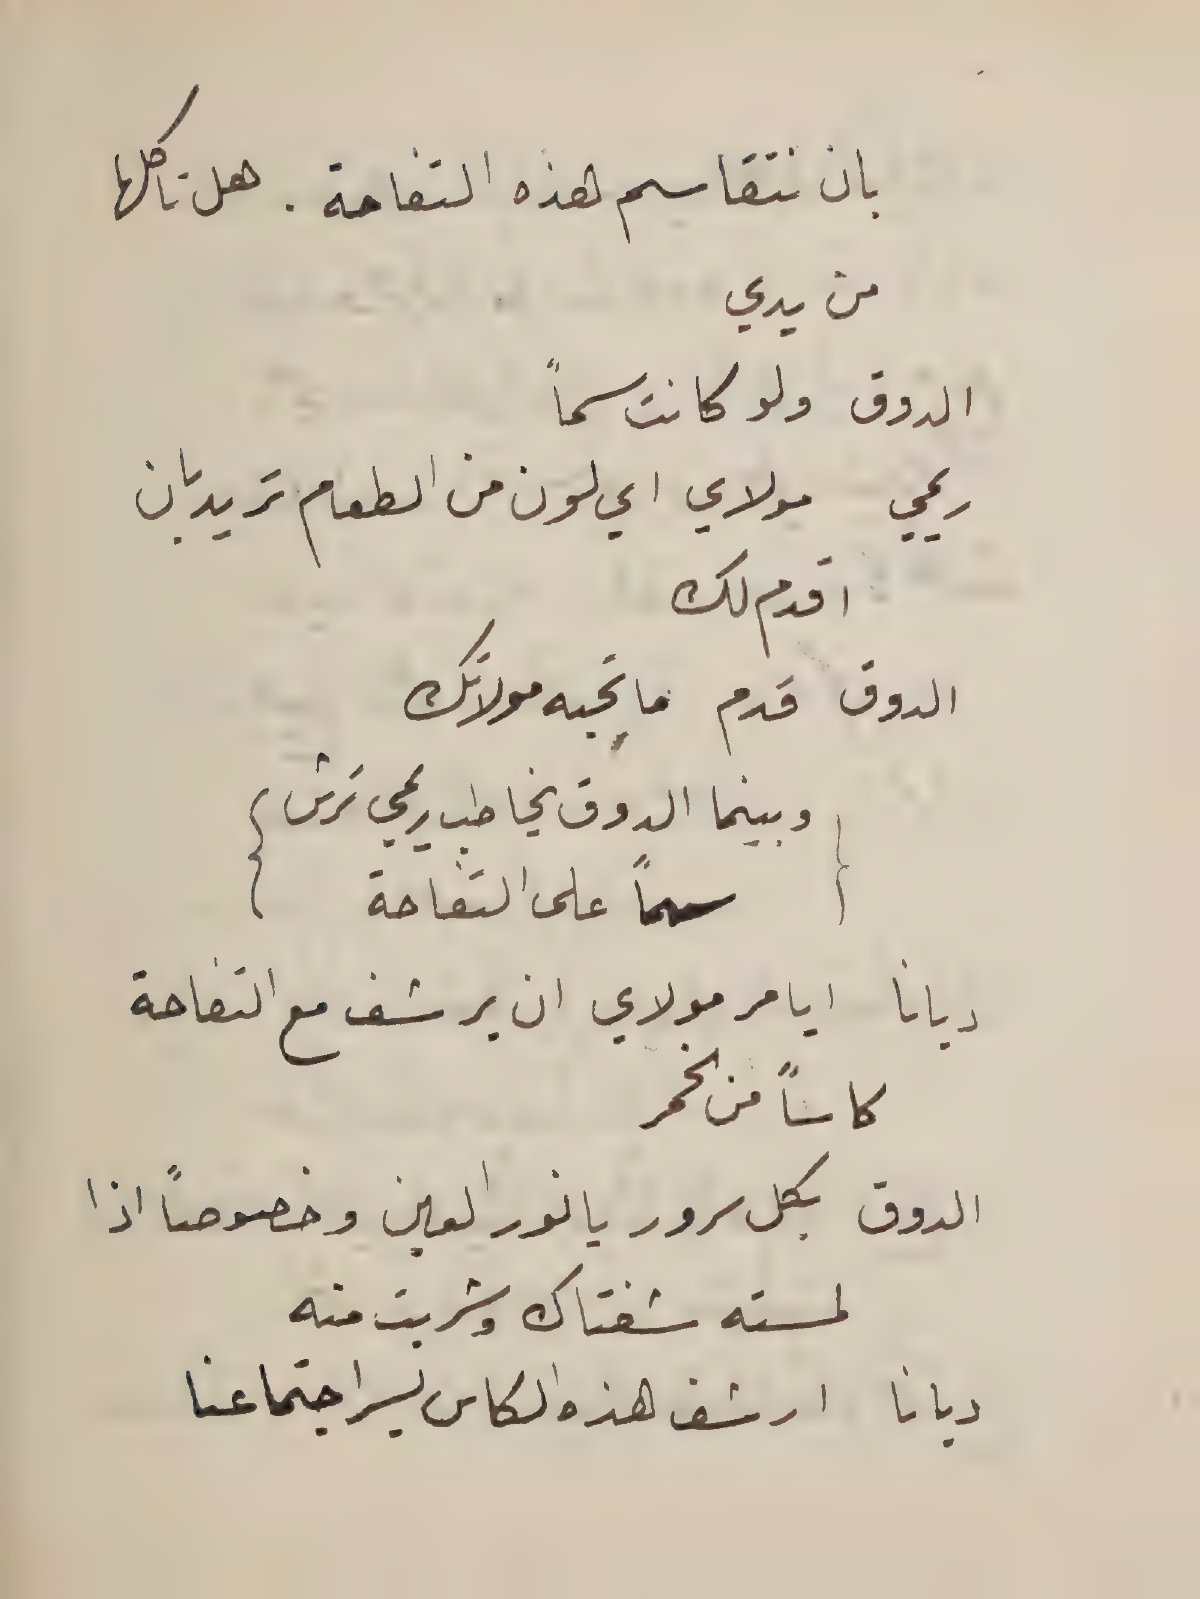 بان نتقاسم هذه التفاحة . هل تأكلها
من يدي
الدوق ولو كانت سماً
ريمي مولاي اي لون من الطعام تريد بان
اقدم لك
الدوق قدم ما تحبه مولاتك
{ وبينما الدوق يخاطب ريمي ترش }
{ سماً على التفاحة }
ديانا ايامر مولاي ان يرشف مع التفاحة
كاساً من الخمر
الدوق بكل سرور يا نور العين وخصوصاً اذا
لمسته شفتاك وشربت منه
ديانا ارشف هذه الكاس بسر اجتماعنا